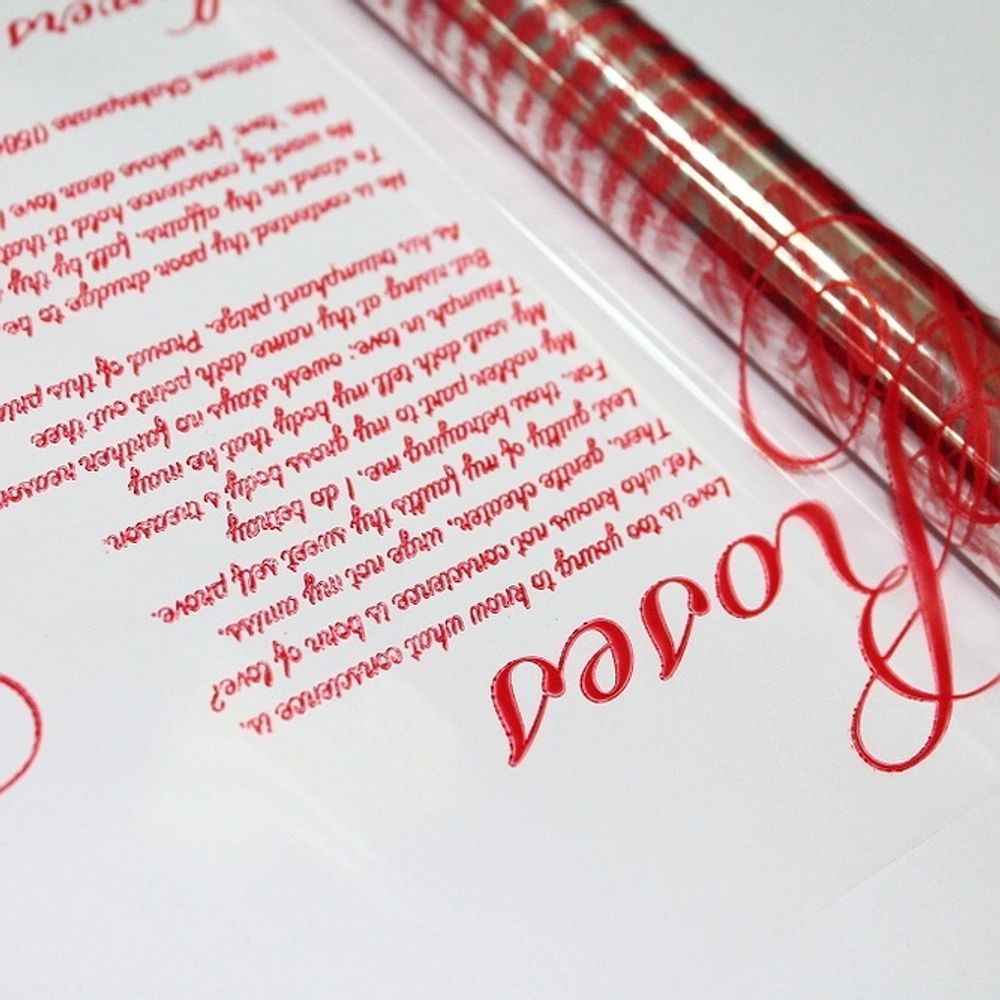 Roses
Love is too young to know what conscience is,
Yet who knows not conscience is born of love?
Then, gentle cheater, urge not my amiss,
Lest guilty of my faults thy sweet self prove.
For, thou betraying me, I do betray
My nobler part to my gross body's treason.
My soul doth tell my body that he may
Triumph in love; owesh stays no farther reason
But rising at thy name doth point out thee
As his triumphant prize. Proud of this pride
He is contented thy poor drudge to be,
To stand in thy affairs, fall by thy
No want of conscience hold it that
Her 'love' for whose dear love
William Shakespeare (156